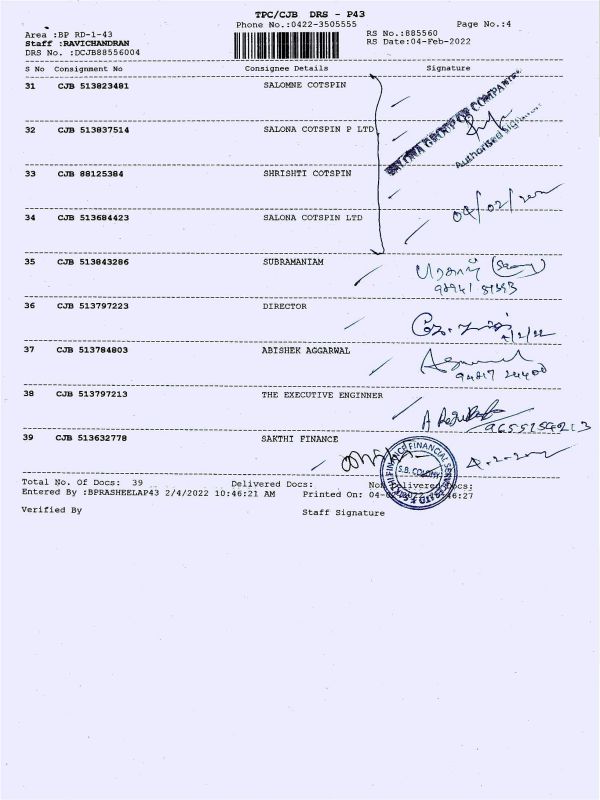 TPC/CJB DRS - P43
Phone No.:0422-3505555 Page No.:4
Area :BP RD-1-43 RS No.:885560
Staff :RAVICHANDRAN RS Date:04-Feb-2022
DRS No. :DCJB88556004
S No Consignment No Consignee Details Signature
31 CJB 513823481 SALOMNE COTSPIN
SALONA GROUP OF COMPANIES
32 CJB 513837514 SALONA COTSPIN P LTD
Authorised Signatory
33 CJB 88125384 SHRISHTI COTSPIN
04/02/2022
34 CJB 513684423 SALONA COTSPIN LTD
35 CJB 513843286 SUBRAMANIAM
36 CJB 513797223 DIRECTOR
4/2/22
37 CJB 513784803 ABISHEK AGGARWAL
38 CJB 513797213 THE EXECUTIVE ENGINNER
9655259213
39 CJB 513632778 SAKTHI FINANCE
S.B. COLONY
4.2.2022
Total No. Of Docs: 39 Delivered Docs: Non Delivered Docs:
Entered By :BPRASHEELAP43 2/4/2022 10:46:21 AM Printed On:
Verified By Staff Signature